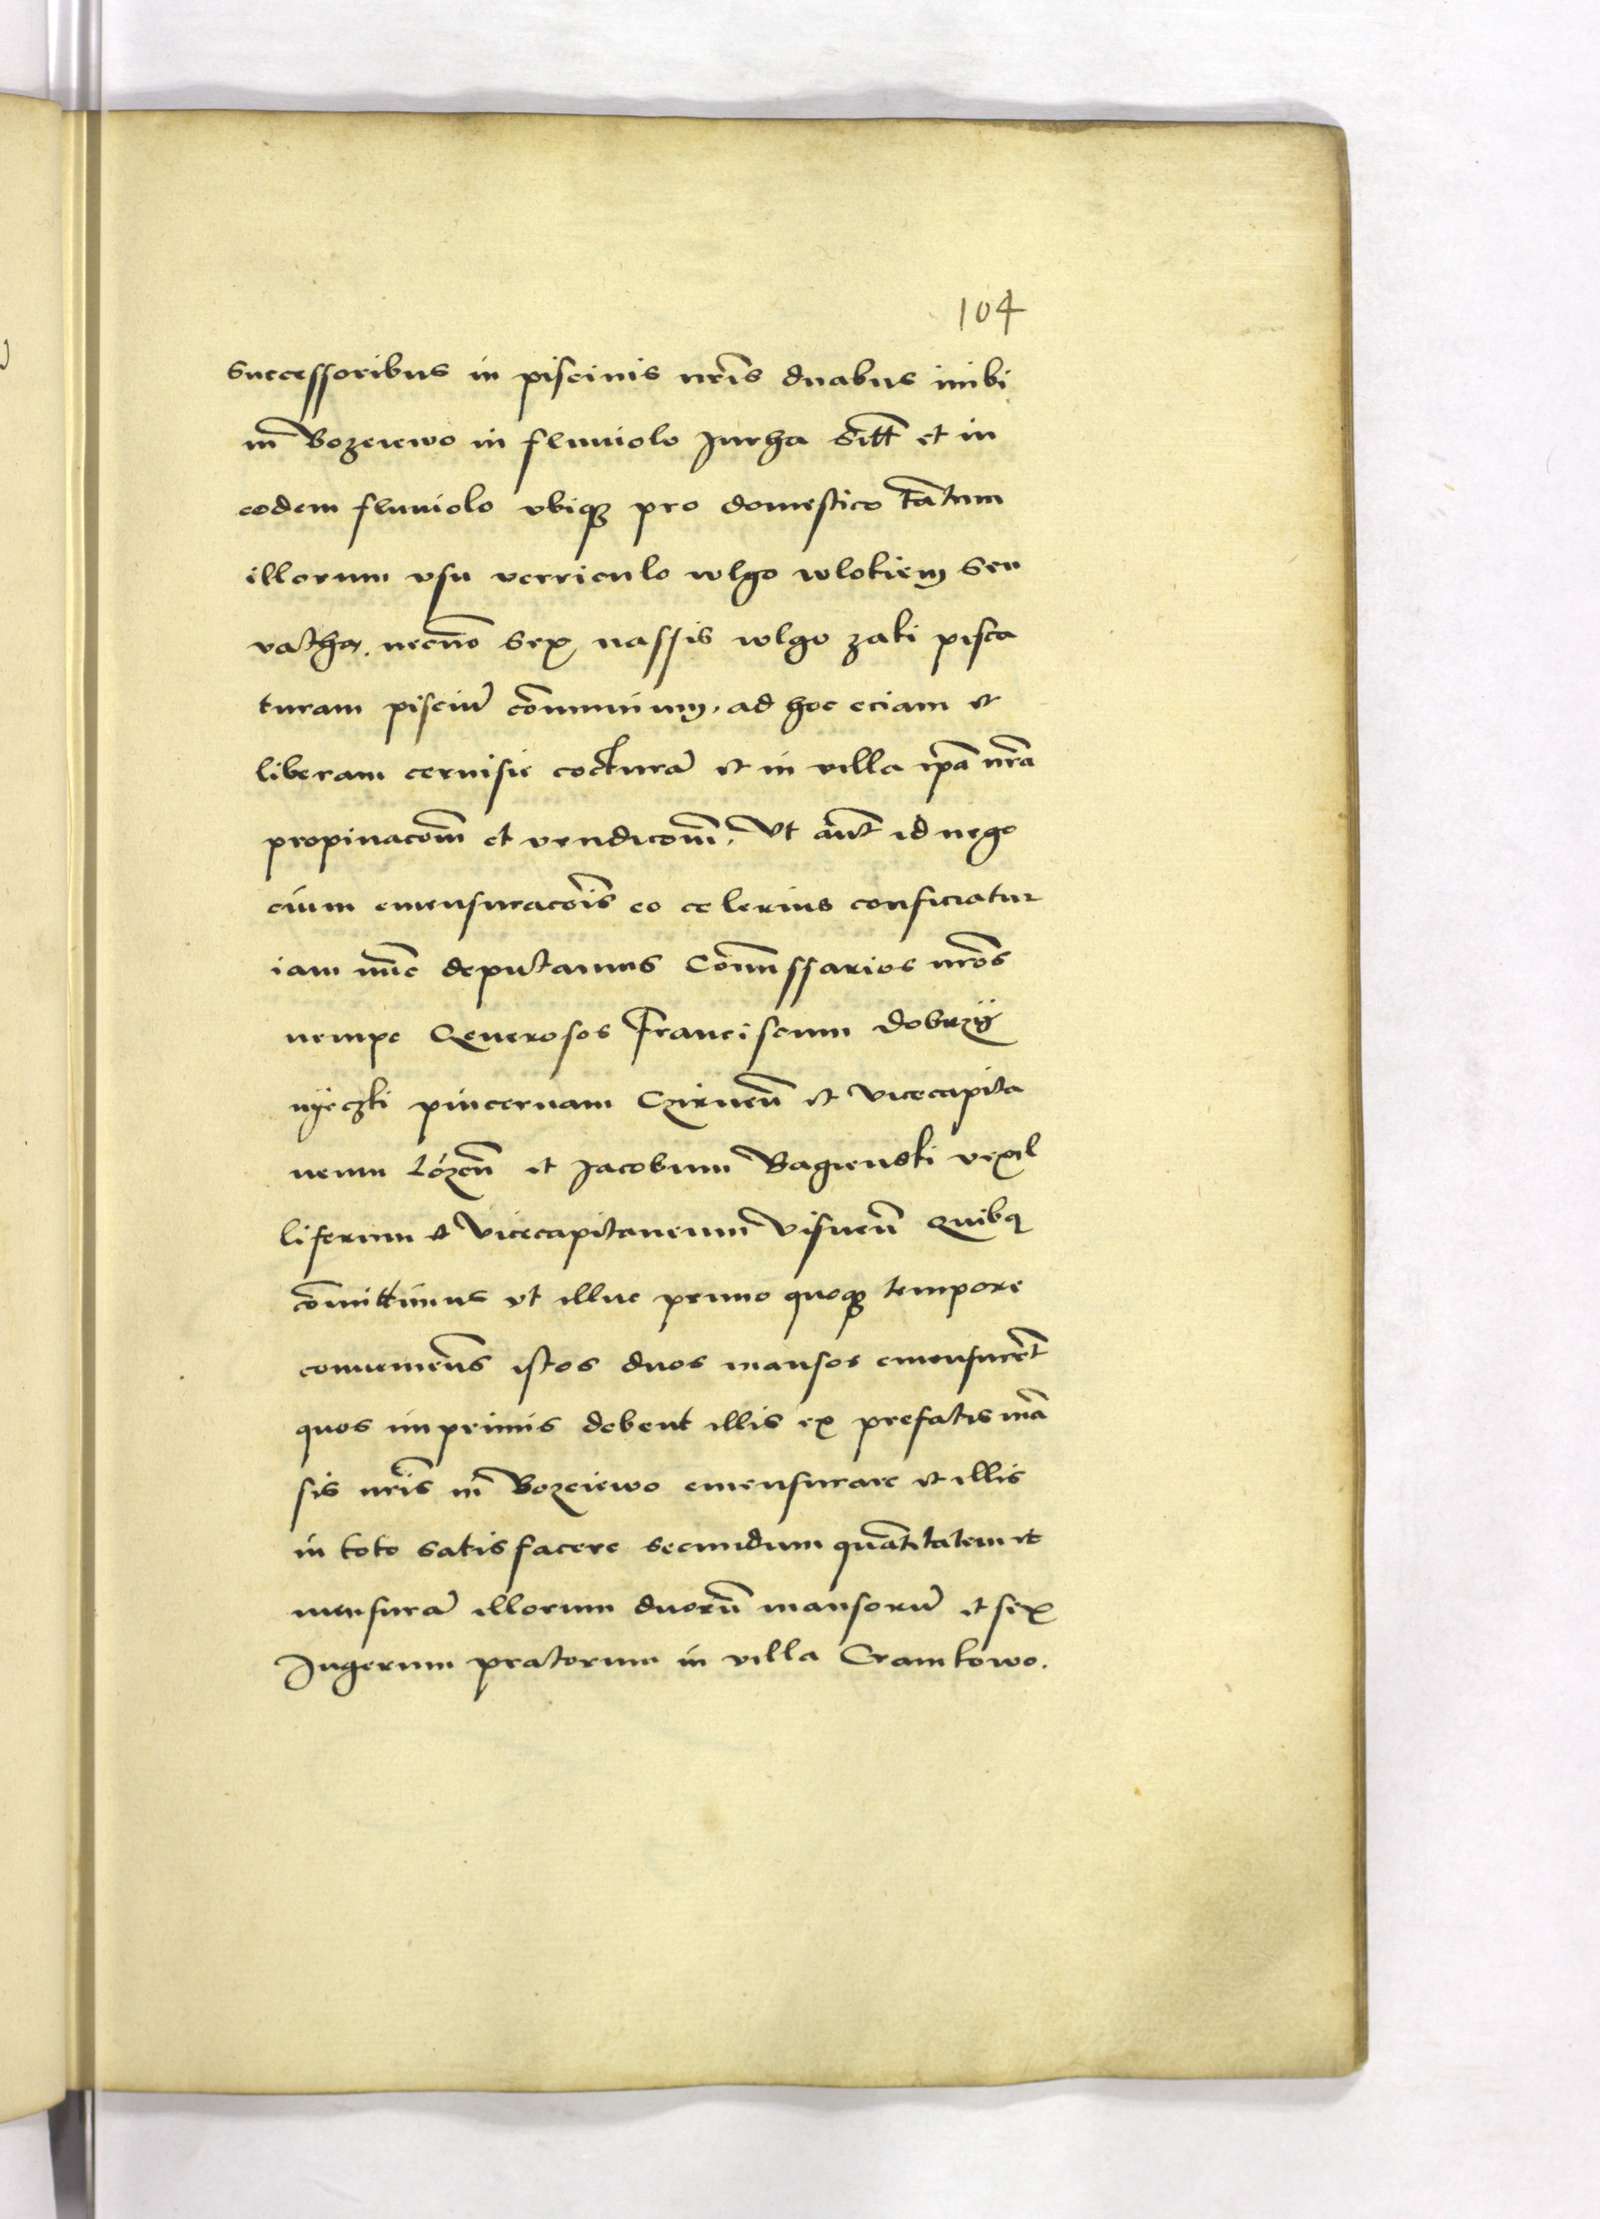 104
successoribus in piscinis nr̃is duabus inibi
in Bozeiewo in fluuiolo Jurha sitt̃ et in
eodem fluuiolo vbiqꝫ pro domestico tãtum
illorum vsu verriculo wlgo wlokiem seu
vatha. necnõ sex nassis wlgo zaki pisca
turam pisciũ cõmunium. ad hoc eciam et
liberam ceruisie cocturã et in villa ip̃a nr̃a
propinacõm et vendicõm. Vt aũt id nego
cium emensuracõis eo celerius conficiatur
iam nũc deputamus Com̃issarios nr̃os
nempe Generosos Franciscum Dobrzÿ
nÿeczki pincernam Czirneñ et vicecapita
neum Lózeñ et Jacobum Bagienski vexil
liferum et vicecapitaneum Visneñ Quibꝯ
cõmittimus vt illuc primo quoqꝫ tempore
conuenieñs istos duos mansos emensurẽt
quos inprimis debent illis ex prefatis mã
sis nr̃is in Bozeiewo emensurare et illis
in toto satisfacere secundum quãtitatem et
mensurã illorum duorũ mansorũ et sex
Jugerum pratorum in villa Cramkowo.